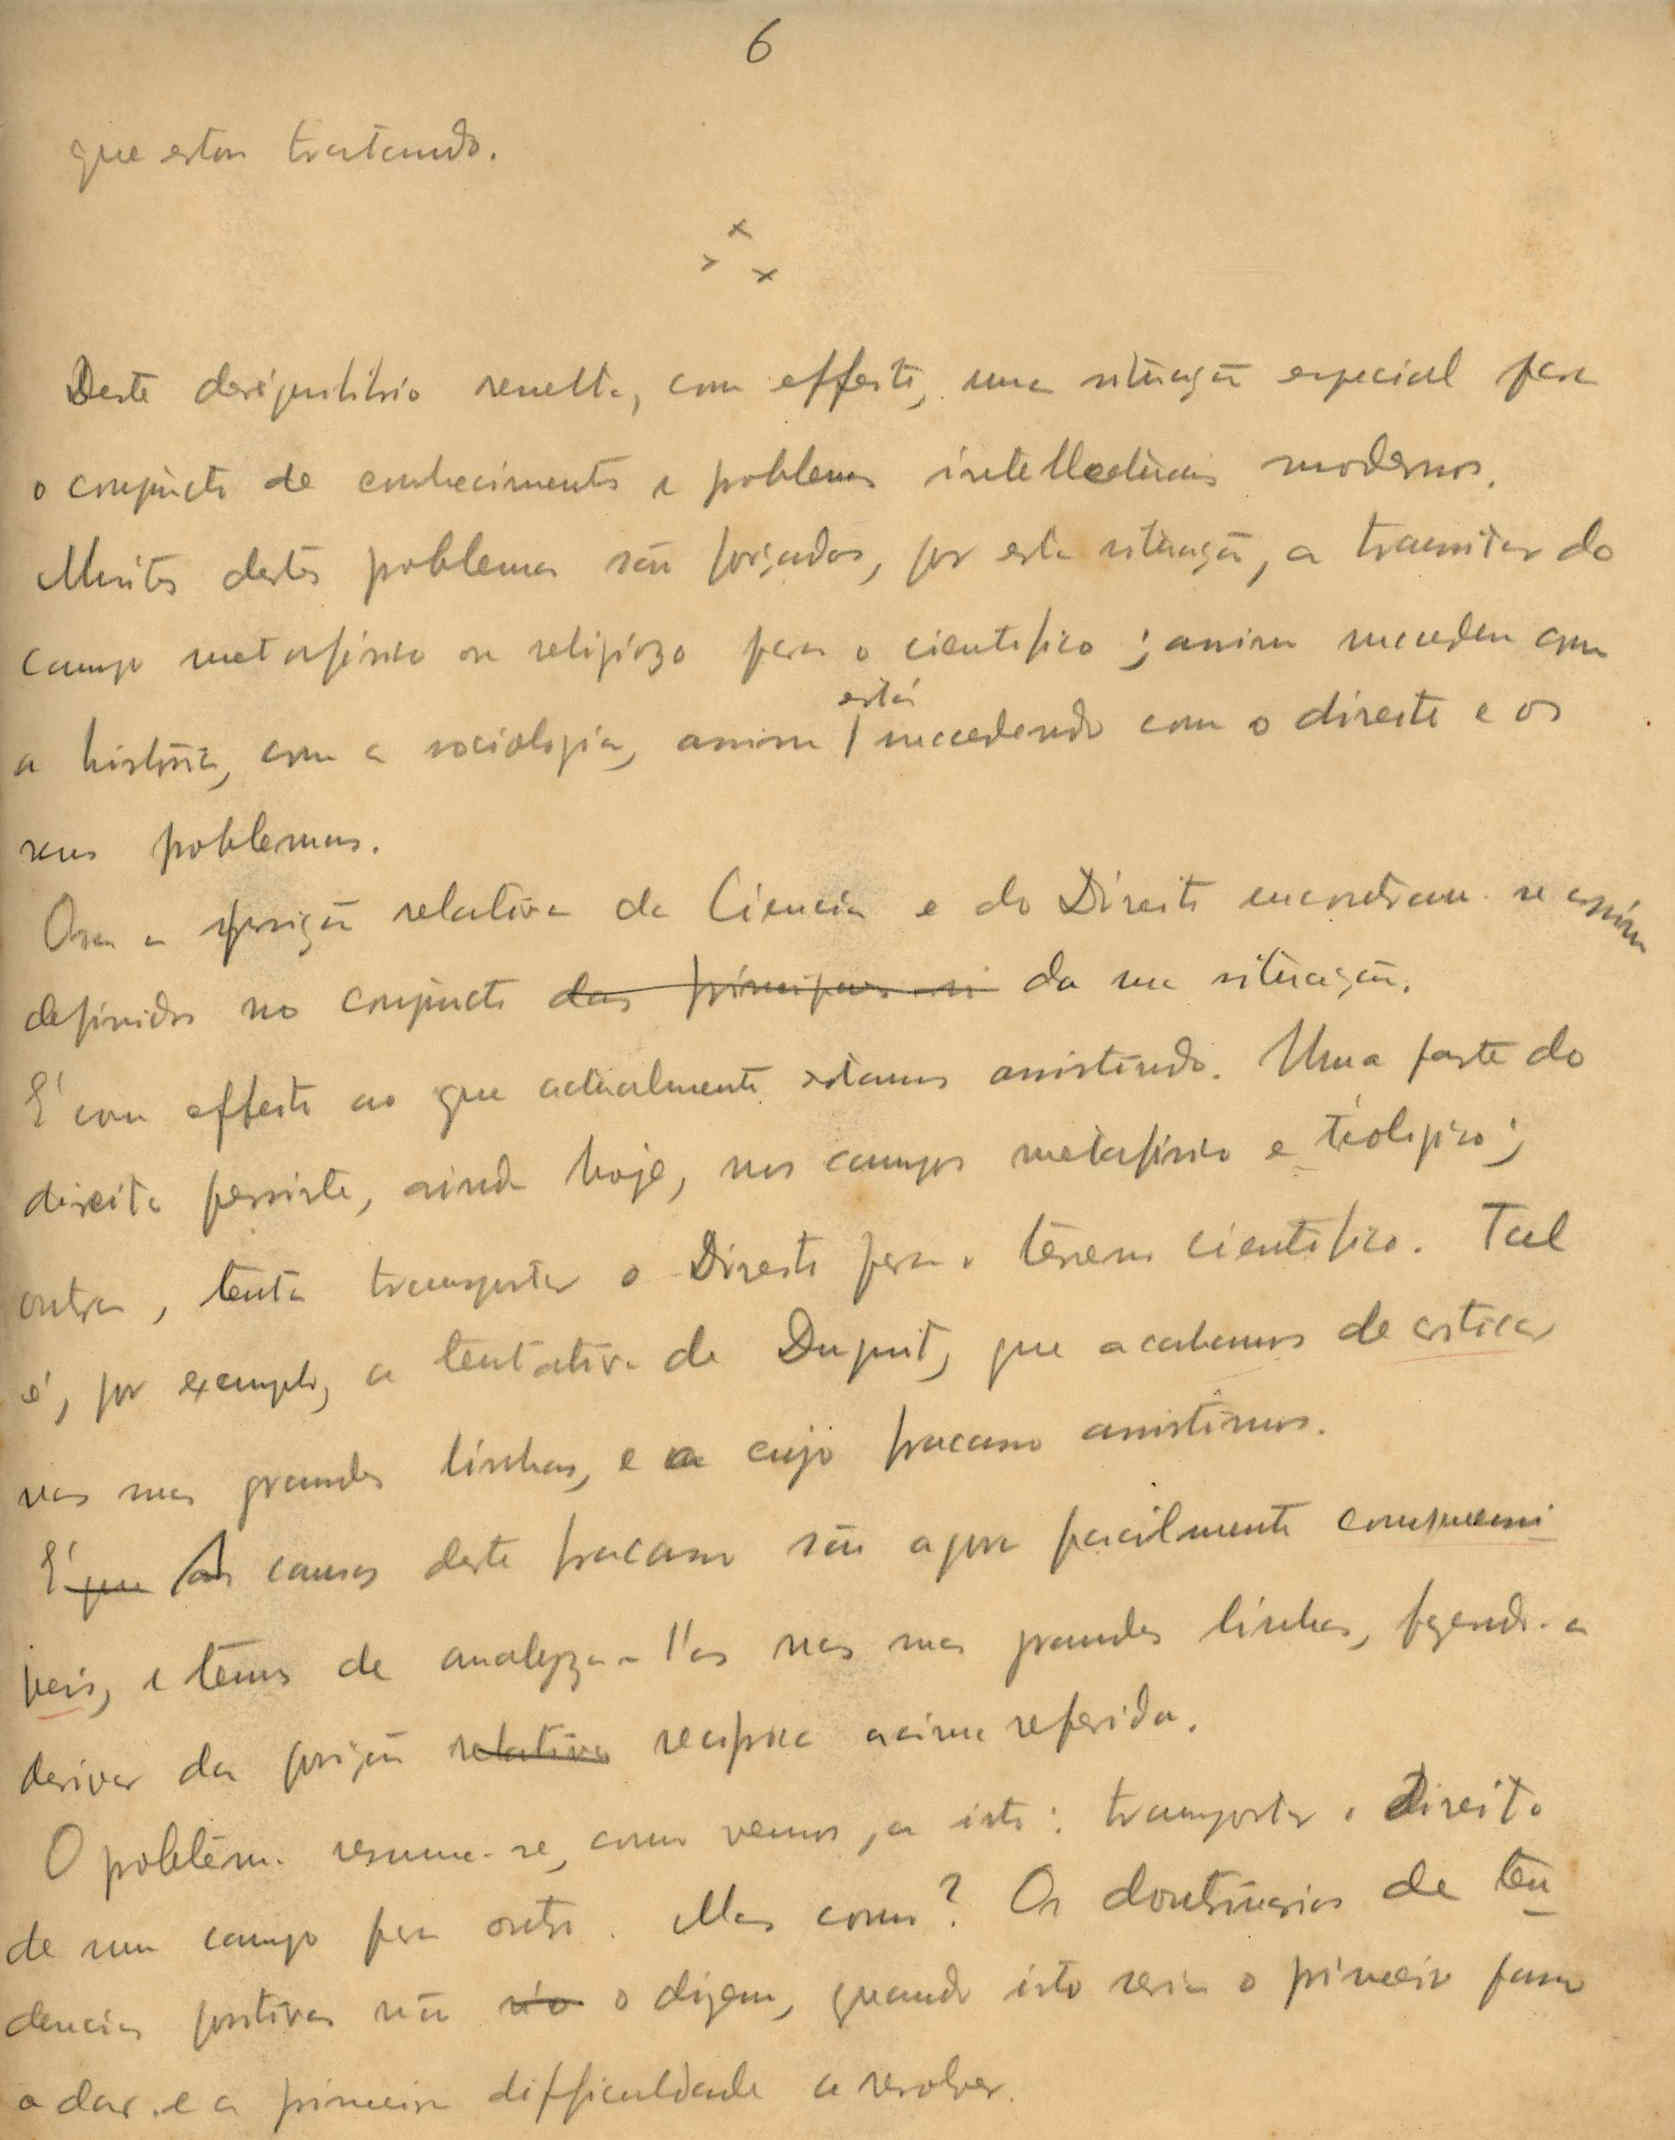 6
que estou tratando.
x
x x
Deste desiquilibrio resulta, com effeito, uma situação especial para
o conjuncto de conhecimentos e problemas intellectuais modernos.
Muitos destes problemas são forçados, por esta situação, a transitar do
campo metafisico ou religiozo para o cientifico; assim succedeu com
a historia, com a sociologia, assim está succedendo com o direito e os
seus problemas.
Ora a posição relativa da Ciencia e do Direito encontram-se assim
definidos no conjuncto das da sua situação.
É com effeito ao que actualmente estamos assistindo. Uma parte do
direito persiste, ainda hoje, nos campos metafisico e teologico;
outra, tenta transportar o Direito para o terreno cientifico. Tal
é, por exemplo, a tentativa de Duguit, que acabamos de criticar
nas suas grandes linhas, e a cujo fracasso assistimos.
É que As causas deste fracasso são agora facilmente comprehensi
veis, e temos de analyza-l'as nas suas grandes linhas, fazendo-a
derivar da posição relativa reciproca acima referida.
O problema resume-se, como vemos, a isto: transportar o Direito
de um campo para outro. Mas como? Os doutrinarios de ten
dencias positivas não o dizem, quando isto seria o primeiro passo
a dar e a primeira difficuldade a resolver.